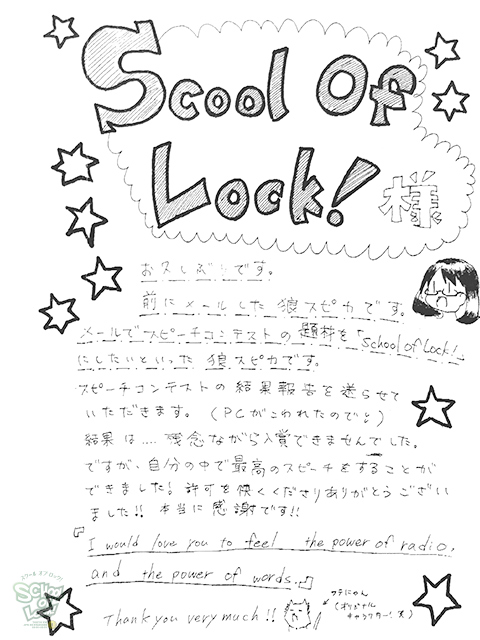 Scool Of
Lock! 様
お久しぶりです。
前にメールした 狼スピカです。
メールでスピーチコンテストの 題材を「School of Lock!」
にしたいといった 狼スピカです。
スピーチコンテストの 結果報告を送らせて
いただきます。(PCがこわれたので)
結果は.... 残念ながら入賞できませんでした。
ですが、自分の中で最高のスピーチをすることが
できました! 許可を快くくださりありがとうござい
ました!! 本当に感謝です!!
『I would love you to feel the power of radio,
and the power of words..』
Thank you very much!!
(オリジナル
キャラクター! 笑)
スクール オブ ロック!
SCHOOL OF
LOCK!